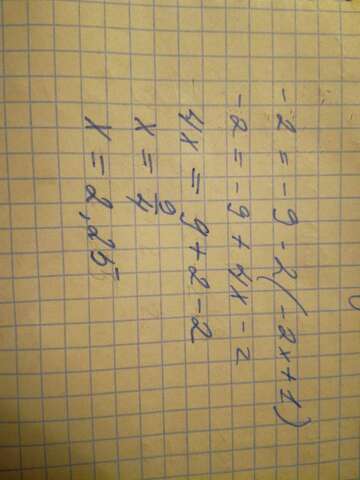 -2 = -9 - 2(-2x+1)
-2 = -9 + 4x - 2
4x = 9+2-2
x = 9/4
x = 2,25